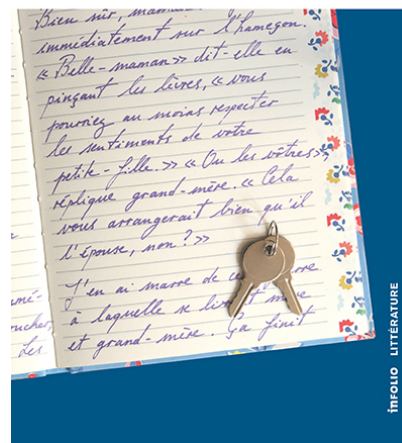 Bien sûr, maman
immédiatement sur l'hameçon.
« Belle-maman » dit-elle en
pinçant les lèvres, « vous
pourriez au moins respecter
les sentiments de votre
petite-fille. » « Ou les vôtres »,
réplique grand-mère. « Cela
vous arrangerait bien qu'il
l'épouse, non ? »
J'en ai marre de
à laquelle se
et grand-mère. Ça finit
ucher,
Les
INFOLIO LITTÉRATURE